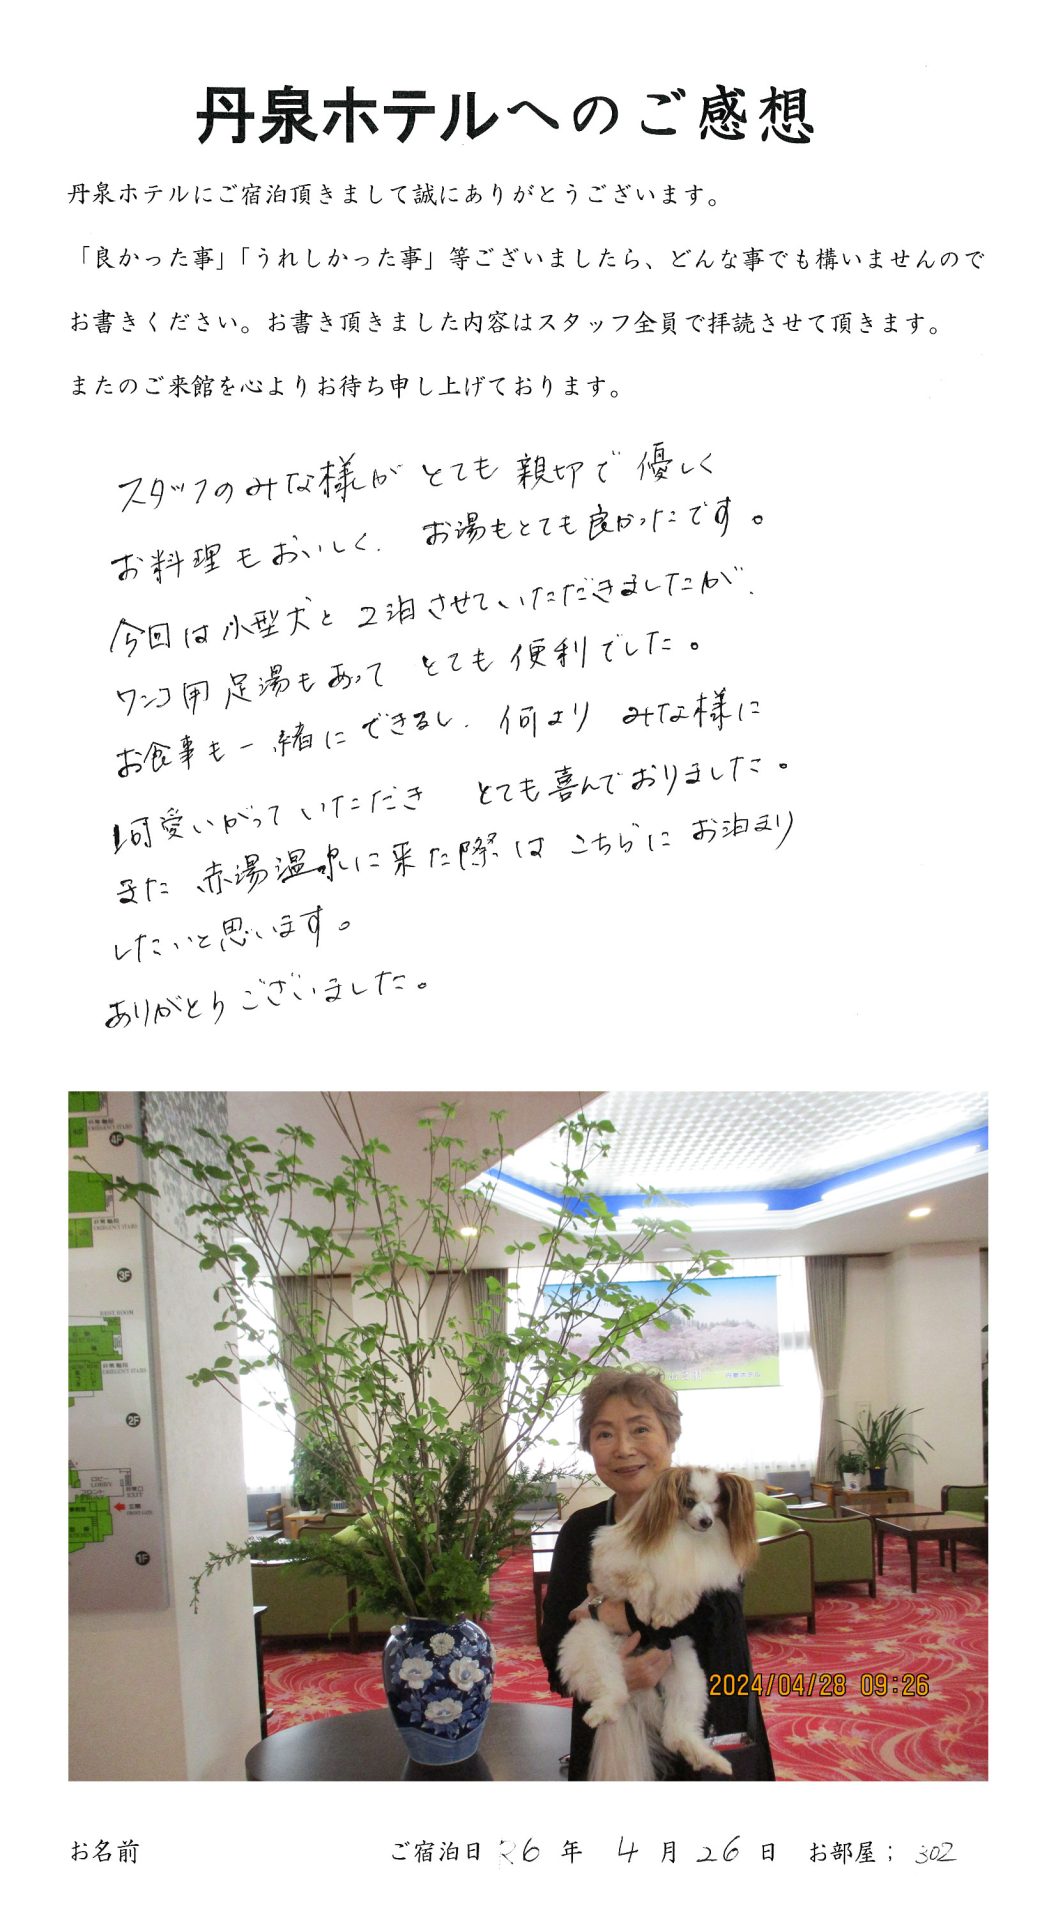 丹泉ホテルへのご感想
丹泉ホテルにご宿泊頂きまして誠にありがとうございます。
「良かった事」「うれしかった事」等ございましたら、どんな事でも構いませんので
お書きください。お書き頂きました内容はスタッフ全員で拝読させて頂きます。
またのご来館を心よりお待ち申し上げております。
スタッフのみな様が とても 親切で 優しく
お料理もおいしく、お湯もとても良かったです。
今回は小型犬と 2泊させていただきましたが、
ワンコ用足湯もあって とても便利でした。
お食事も一緒にできるし、何より みな様に
可愛いがっていただき とても喜んでおりました。
また 赤湯温泉に来た際は こちらに お泊まり
したいと思います。
ありがとうございました。
4F
3F
REST ROOM
2F
ロビー
LOBBY
フロント
玄関
1F
丹泉ホテル
2024/04/28 09:26
お名前 ご宿泊日 R6 年 4 月 26 日 お部屋; 302